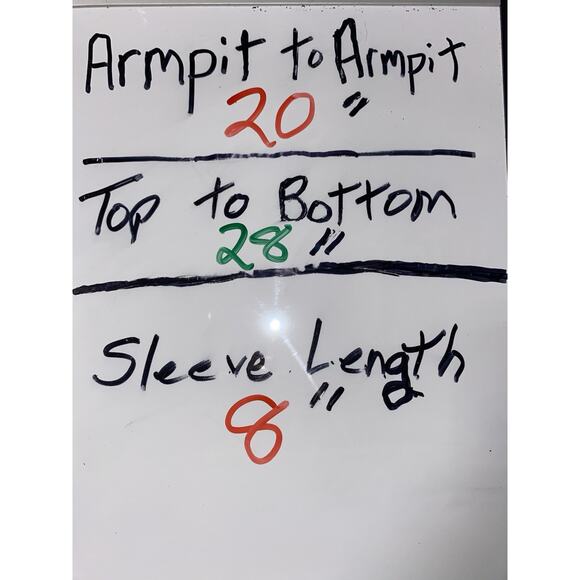 Armpit to Armpit
20"
Top to Bottom
28"
Sleeve Length
8"